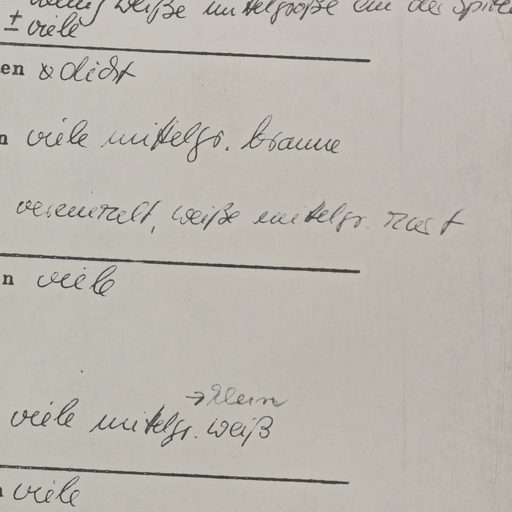 weiße mittelgroße an der Spitze
± viele
en dicht
n viele mittelgr. braune
vereinzelt, weiße mittelgr. rast
n viele
→ klein
viele mittelgr. weiß
viele